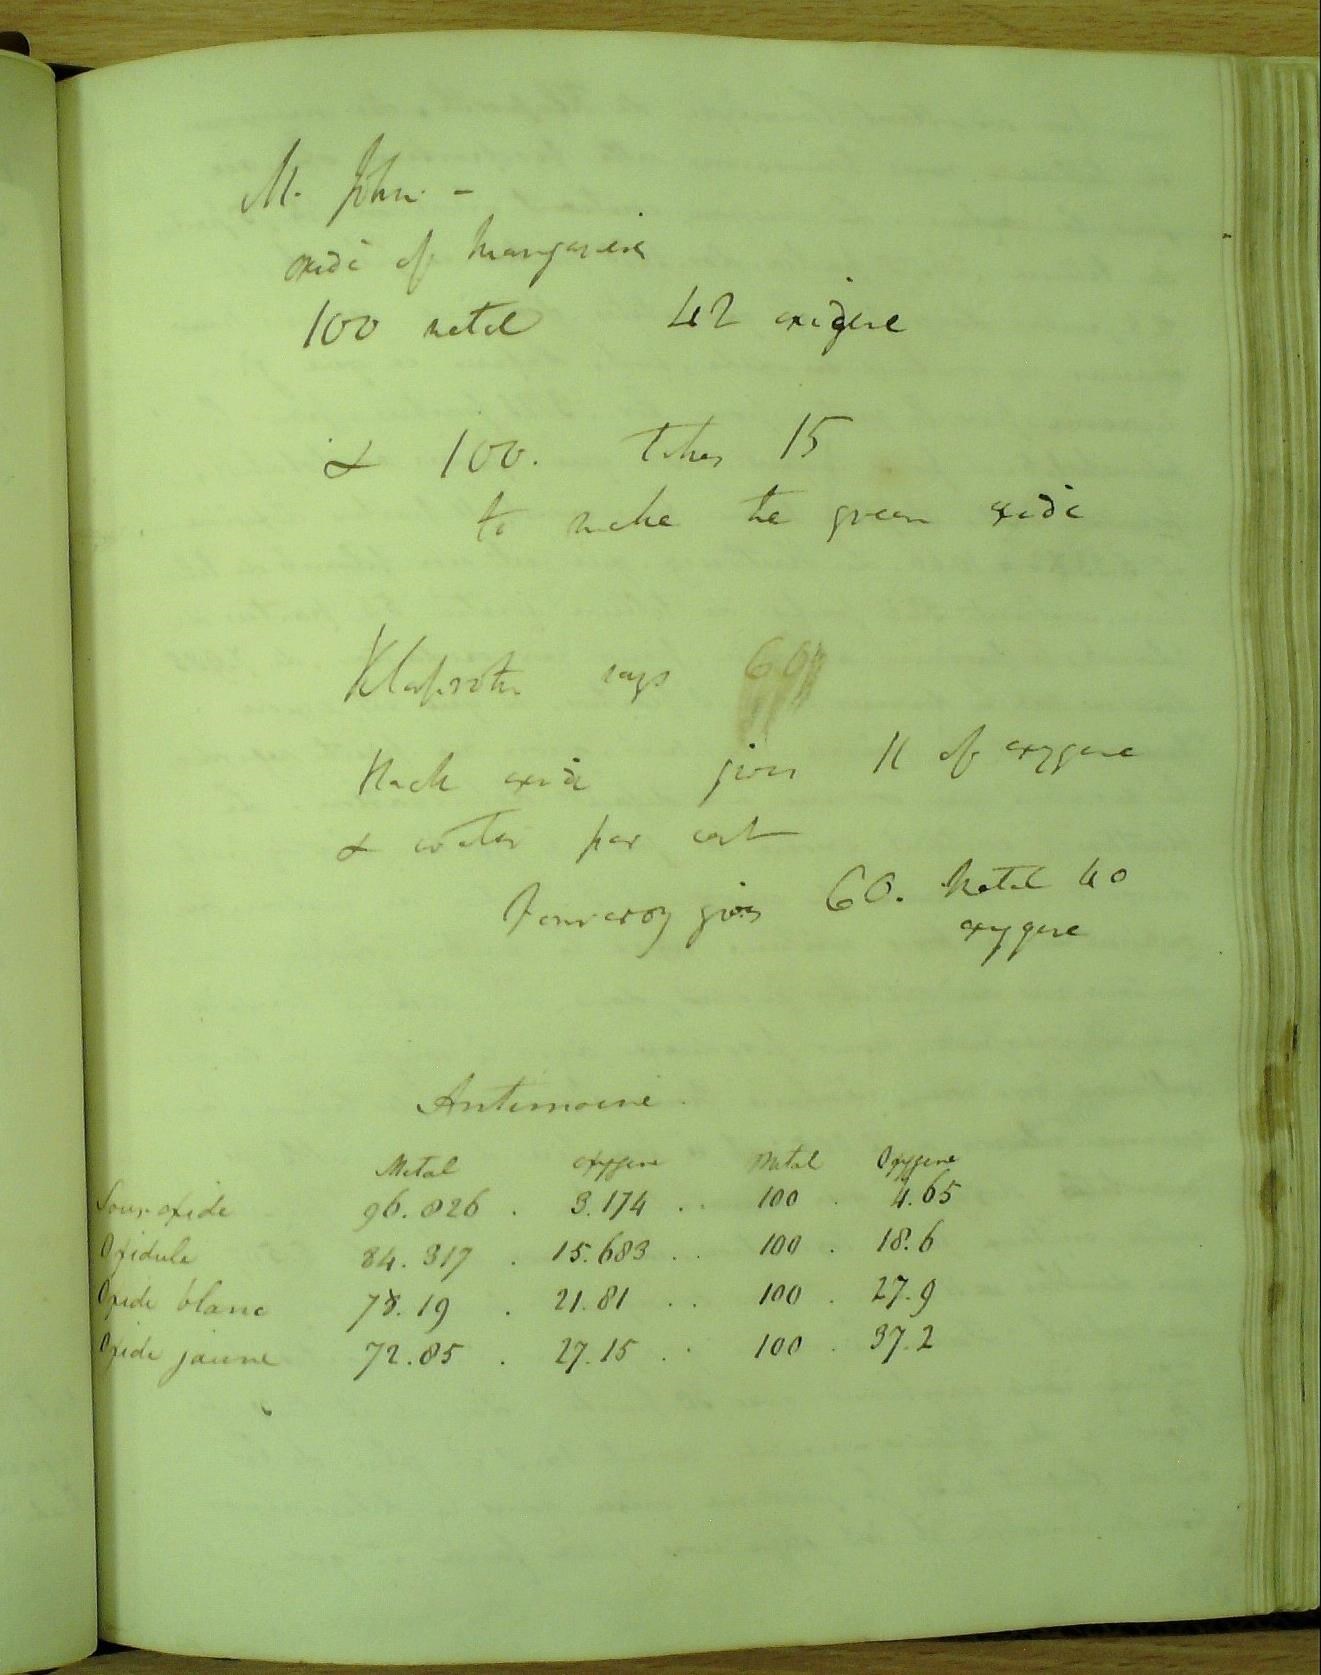 M. John. -
oxide of Manganese
100 metal 42 oxigene
& 100. takes 15
to make the green oxide
Klaproth says 60
black oxide gives 11 of oxygene
& water per cent
Fourcroy gives 60. Metal 40
oxygene
Antimoine.
Metal oxygene Metal Oxygene
Sous-oxide 96.826 . 3.174 .. 100 . 4.65
Oxidule 84.317 . 15.683 .. 100 . 18.6
Oxide blanc 78.19 . 21.81 .. 100 . 27.9
Oxide jaune 72.85 . 27.15 .. 100 . 37.2